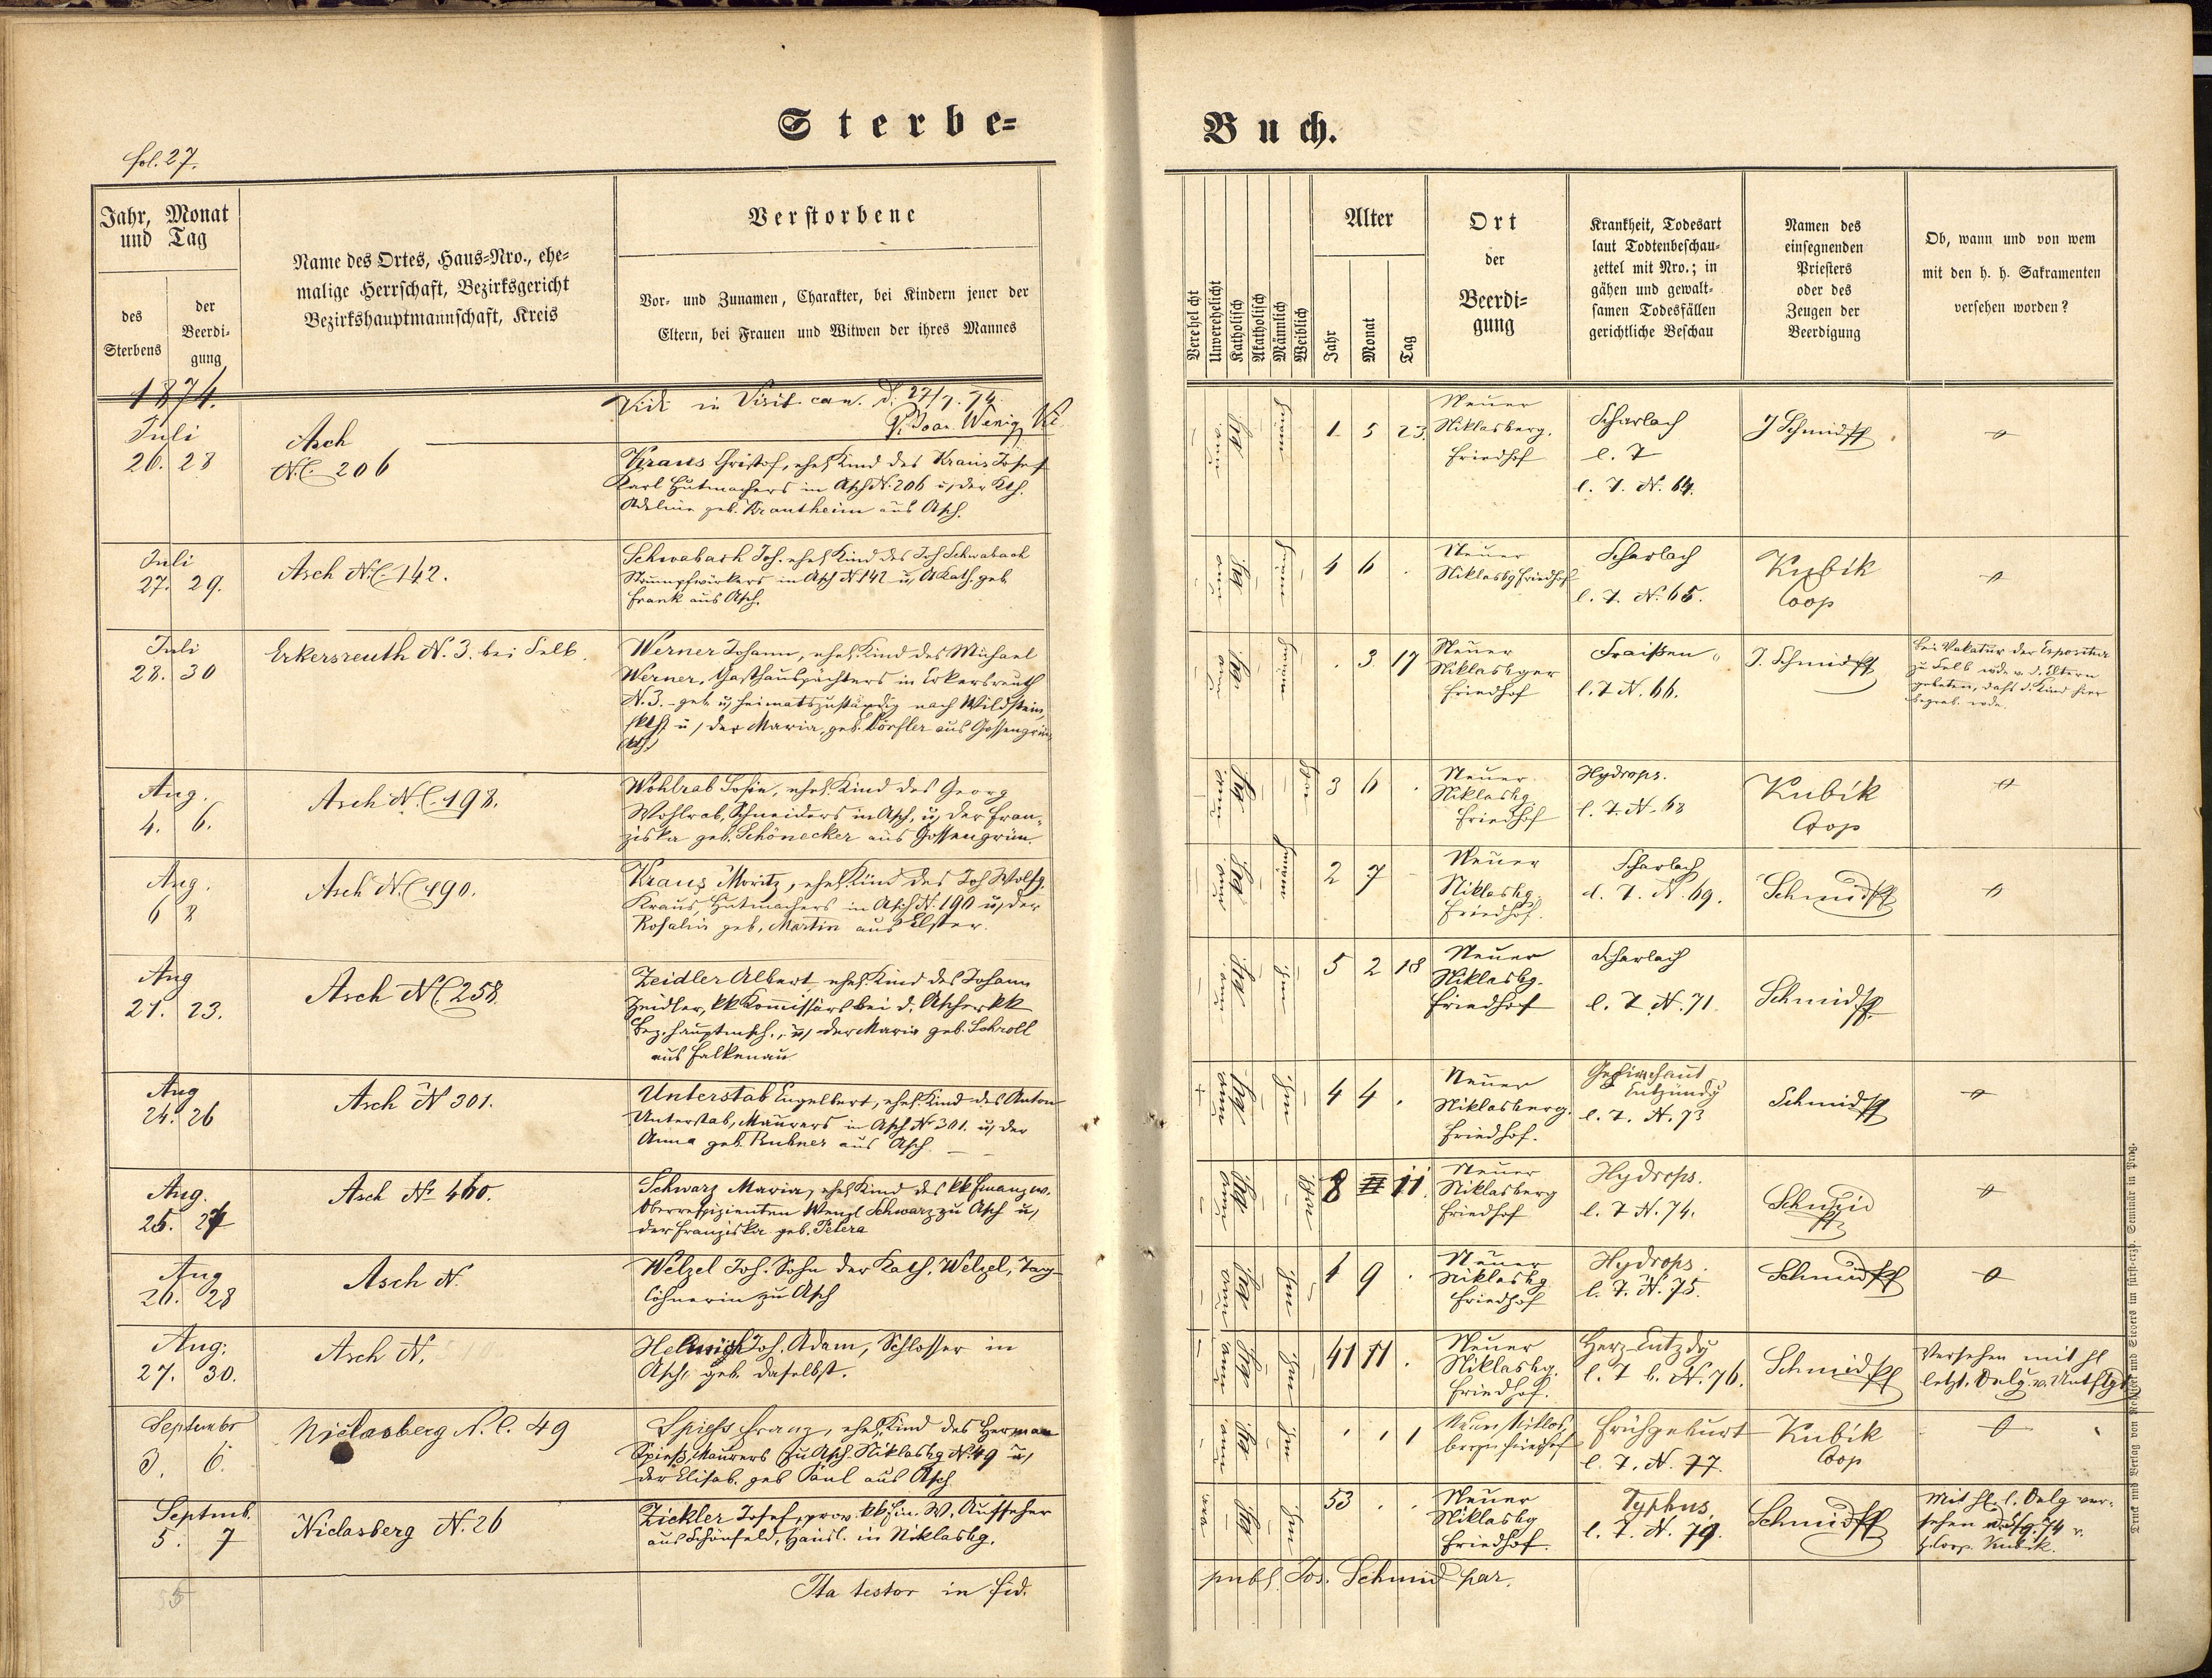 Sterbe=
Buch.
fol. 27.
Jahr, Monat
und Tag
des
Sterbens
der
Beerdi-
gung
Name des Ortes, Haus-Nro., ehe-
malige Herrschaft, Bezirksgericht
Bezirkshauptmannschaft, Kreis
Verstorbene
Vor- und Zunamen, Charakter, bei Kindern jener der
Eltern, bei Frauen und Witwen der ihres Mannes
Verehelicht
Unverehelicht
Katholisch
Akatholisch
Männlich
Weiblich
Alter
Jahr
Monat
Tag
Ort
der
Beerdi-
gung
Krankheit, Todesart
laut Todtenbeschau-
zettel mit Nro.; in
gähen und gewalt-
samen Todesfällen
gerichtliche Beschau
Namen des
einsegnenden
Priesters
oder des
Zeugen der
Beerdigung
Ob, wann und von wem
mit den h. h. Sakramenten
versehen worden?
1874.
Vidi in Visit. can. d. 27/7. 74.
P. Joan. Wenig
Juli
26. 28
Asch
N.C. 206
Kraus Christof, ehel. Kind des Kraus Josef
Karl Hutmachers in Asch N. 206 u. der Kth.
Adeline geb. Krautheim aus Asch.
1 5 23.
Neuer
Niklasberg.
Friedhof
Scharlach
l. Z
l. Z. N. 64.
J Schmid
Juli
27. 29.
Asch N.C. 142.
Schwabach Joh. ehel. Kind des Joh Schwabach
Strumpfwirkers in Asch N 142 u. Kath. geb
Frank aus Asch.
4 6 .
Neuer
Niklasbg Friedhof
Scharlach
l. Z. N. 65.
Kubik
Coop
Juli
28. 30
Erkersreuth N. 3. bei Selb.
Werner Johann, ehel. Kind des Michael
Werner, Gasthauspächters in Erkersreuth
N. 3. - geb. u. heimatszuständig nach Wildstein,
u. der Maria, geb. Dörfler aus Gossengrün
. 3 17
Neuer
Niklasbger
Friedhof
Fraißen
l. Z N. 66.
J. Schmid
bei Vakatur der Expositur
zu Selb wde v. d. Eltern
gebeten, daß d. Kind hier
begrab. wde.
Aug.
4. 6.
Asch N.C. 198.
Wohlrab Sofie, ehel. Kind des Georg
Wohlrab, Schneiders in Asch, u. der Fran-
ziska geb. Schönecker aus Gossengrün.
3 6 .
Neuer
Niklasbg.
Friedhof
Hydrops.
l. Z. N. 68
Kubik
Coop
Aug.
6 8
Asch N.C 190.
Kraus Moritz, ehel. Kind des Joh Wolfg.
Kraus, Hutmachers in Asch N. 190 u. der
Rosalia geb. Martin aus Elster.
2 7 -
Neuer
Niklasbg.
Friedhof.
Scharlach
l. Z. N. 69.
Schmid
Aug
21. 23.
Asch N.C. 258.
Zeidler Albert, ehel. Kind des Johann
Zeidler, kk Kommissärs bei d. Ascher kk
Bez. hauptmsch., u. der Maria geb. Schroll
aus Falkenau
5 2 18
Neuer
Niklasbg.
Friedhof
Scharlach
l. Z. N. 71.
Schmid
Aug
24. 26
Asch N 301.
Unterstab Engelbert, ehel. Kind des Anton
Unterstab, Maurers in Asch N 301. u. der
Anna geb. Rubner aus Asch.
4 4 .
Neuer
Niklasberg.
Friedhof.
Gehirnhaut
Entzündg
l. Z. N. 73
Schmid
Aug.
25. 27
Asch N 460.
Schwarz Maria, ehel. Kind des kk Finanzw.
Oberrespizienten Wenzl Schwarz zu Asch u.
der Franziska geb. Petera
8 11
Neuer
Niklasberg
Friedhof
Hydrops.
l. Z N. 74.
Schmid
Aug
26. 28
Asch N.
Welzel Joh. Sohn der Kath. Welzel, Tag-
löhnerin zu Asch
1 9 .
Neuer
Niklasbg
Friedhof
Hydrops.
l. Z. N. 75.
Schmid
Aug:
27. 30.
Asch N.
Joh. Adam, Schlosser in
Asch, geb. daselbst.
41 11 .
Neuer
Niklasbg.
Friedhof.
Herz-Entzdg
l. Z b. N. 76.
Schmid
Versehen mit hl
letzt. Oelg.
Septembr
3. 6.
Niclasberg N.C. 49
Spiess Franz, ehel. Kind des Herman
Spieß, Maurers zu Asch. Niklasbg N. 49 u.
der Elisab. geb Paul aus Asch
Neuer Niklas
berger Friedhof
Frühgeburt
l. Z. N. 77.
Kubik
Coop
Septmb.
5. 7
Niclasberg N. 26
Zickler Josef, prov. kk Fin. W. Aufseher
aus Schönfeld, Häusl. in Niklasbg.
53 . .
Neuer
Niklasbg
Friedhof.
Typhus,
l. Z. N. 79.
Schmid
Mit hl. l. Oelg ver-
sehen
Coop. Kubik.
Ita testor in fid.
publ. Jos. Schmid par.
Druck und Verlag von Rohliček und Sievers im fürst-erzb. Seminar in Prag.